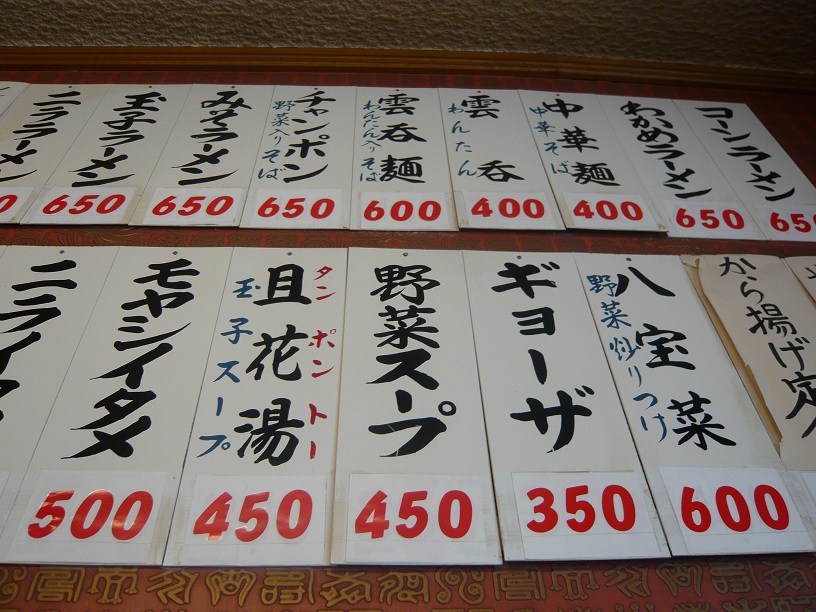 ニララーメン
0
玉子ラーメン
650
みそラーメン
650
チャンポン
野菜入りそば
650
雲呑麺
わんたん入りそば
600
雲呑
わんたん
400
中華麺
中華そば
400
わかめラーメン
650
コーンラーメン
650
ニライタ
モヤシイタメ
500
タンポントー
且花湯
玉子スープ
450
野菜スープ
450
ギョーザ
350
八宝菜
野菜炒りつけ
600
から揚げ定